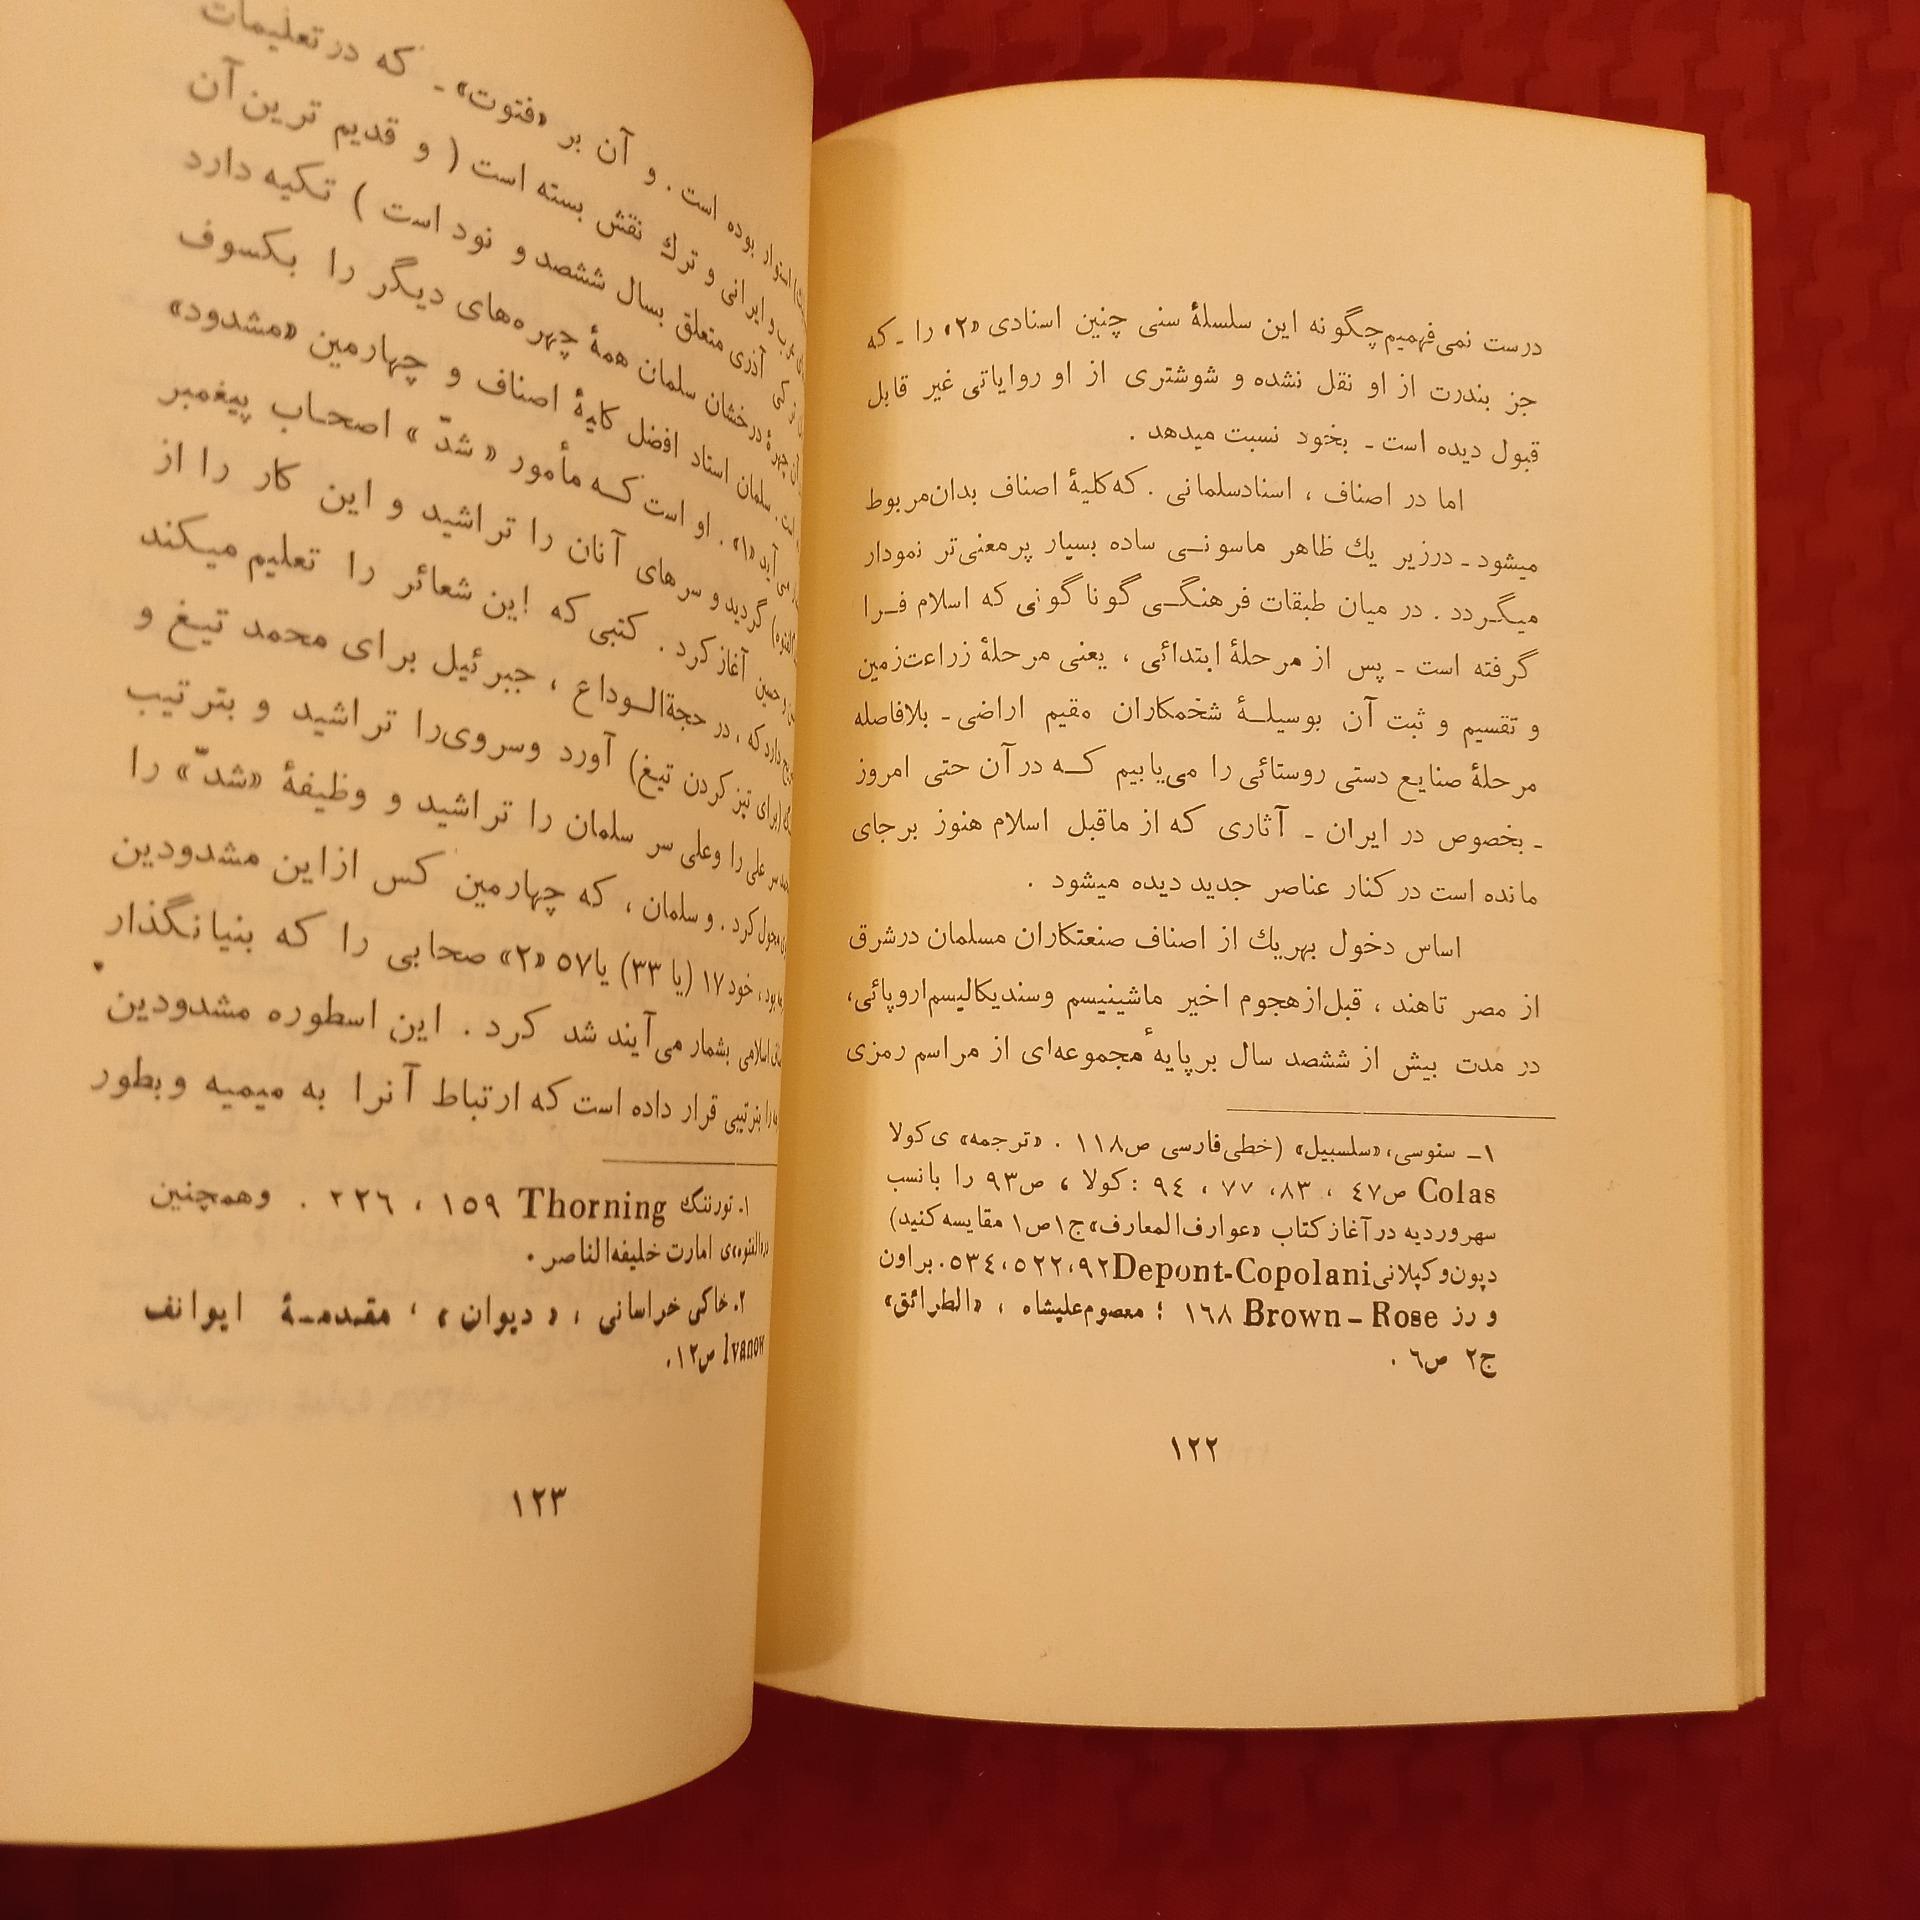 درست نمی‌فهمیم چگونه این سلسلهٔ سنی چنین اسنادی «۲» را ـ که
جز بندرت از او نقل نشده و شوشتری از او روایاتی غیر قابل
قبول دیده است ـ بخود نسبت میدهد .
اما در اصناف ، اسناد سلمانی . که کلیهٔ اصناف بدان مربوط
میشود ـ درزیر یك ظاهر ماسونـی ساده بسیار پرمعنی‌تر نمودار
میگـردد . در میان طبقات فرهنگـی گوناگونی که اسلام فـرا
گرفته است ـ پس از مرحلهٔ ابتدائی ، یعنی مرحلهٔ زراعت‌زمین
و تقسیم و ثبت آن بوسیلـهٔ شخمکاران مقیم اراضی ـ بلافاصله
مرحلهٔ صنایع دستی روستائی را می‌یابیم کـه در آن حتی امروز
ـ بخصوص در ایران ـ آثاری که از ماقبل اسلام هنوز برجای
مانده است در کنار عناصر جدید دیده میشود .
اساس دخول بهریك از اصناف صنعتکاران مسلمان درشرق
از مصر تاهند ، قبل‌ازهجوم اخیر ماشینیسم وسندیکالیسم‌اروپائی،
در مدت بیش از ششصد سال برپایهٔ مجموعه‌ای از مراسم رمزی
۱ـ سنوسی، «سلسبیل» (خطی‌فارسی ص۱۱۸ . «ترجمه» ی کولا
Colas ص۴۷ ، ۸۳، ۷۷ ، ۹۴ : کولا ، ص۹۳ را بانسب
سهروردیه در آغاز کتاب «عوارف‌المعارف» ج۱ص۱ مقایسه کنید)
دپون‌و کپلانی Depont-Copolani ۹۲، ۵۲۲، ۵۳۴. براون
و رز Brown – Rose ۱۶۸ ؛ معصوم‌علیشاه ، «الطرائق»
ج۲ ص۶ .
۱۲۲
استوار بوده است . و آن بر «فتوت» ـ که در تعلیمات
و ایرانی و ترك نقش بسته است ( و قدیم ترین آن
آذری متعلق بسال ششصد و نود است ) تکیه دارد
چهرهٔ درخشان سلمان همهٔ چهره‌های دیگر را بکسوف
سلمان استاد افضل کلیهٔ اصناف و چهارمین «مشدود»
می‌آید «۱» . او است کـه مأمور « شدّ » اصحاب پیغمبر
گردید و سرهای آنان را تراشید و این کار را از
و حسین آغاز کرد . کتبی که این شعائر را تعلیم میـکند
دارد که ، در حجةالـوداع ، جبرئیل برای محمد تیـغ و
(برای تیز کردن تیغ) آورد وسروی‌را تراشید و بترتیب
سر علی را وعلی سر سلمان را تراشید و وظیفهٔ «شدّ» را
محول کرد . و سلمان ، که چهارمین کس ازاین مشدودین
بود ، خود ۱۷ (یا ۳۳) یا۵۷ «۲» صحابی را که بنیانگذار
اسلامی بشمار می‌آیند شد کرد . این اسطوره مشدودین
را بترتیبی قرار داده است که ارتباط آنرا به میمیه وبطور
۱. تورننگ Thorning ۱۵۹ ، ۲۲۶ . وهمچنین
امارت خلیفه‌الناصر .
۲. خاکی خراسانی ، « دیوان » ، مقدمـهٔ ایوانف
Ivanow ص۱۲.
۱۲۳